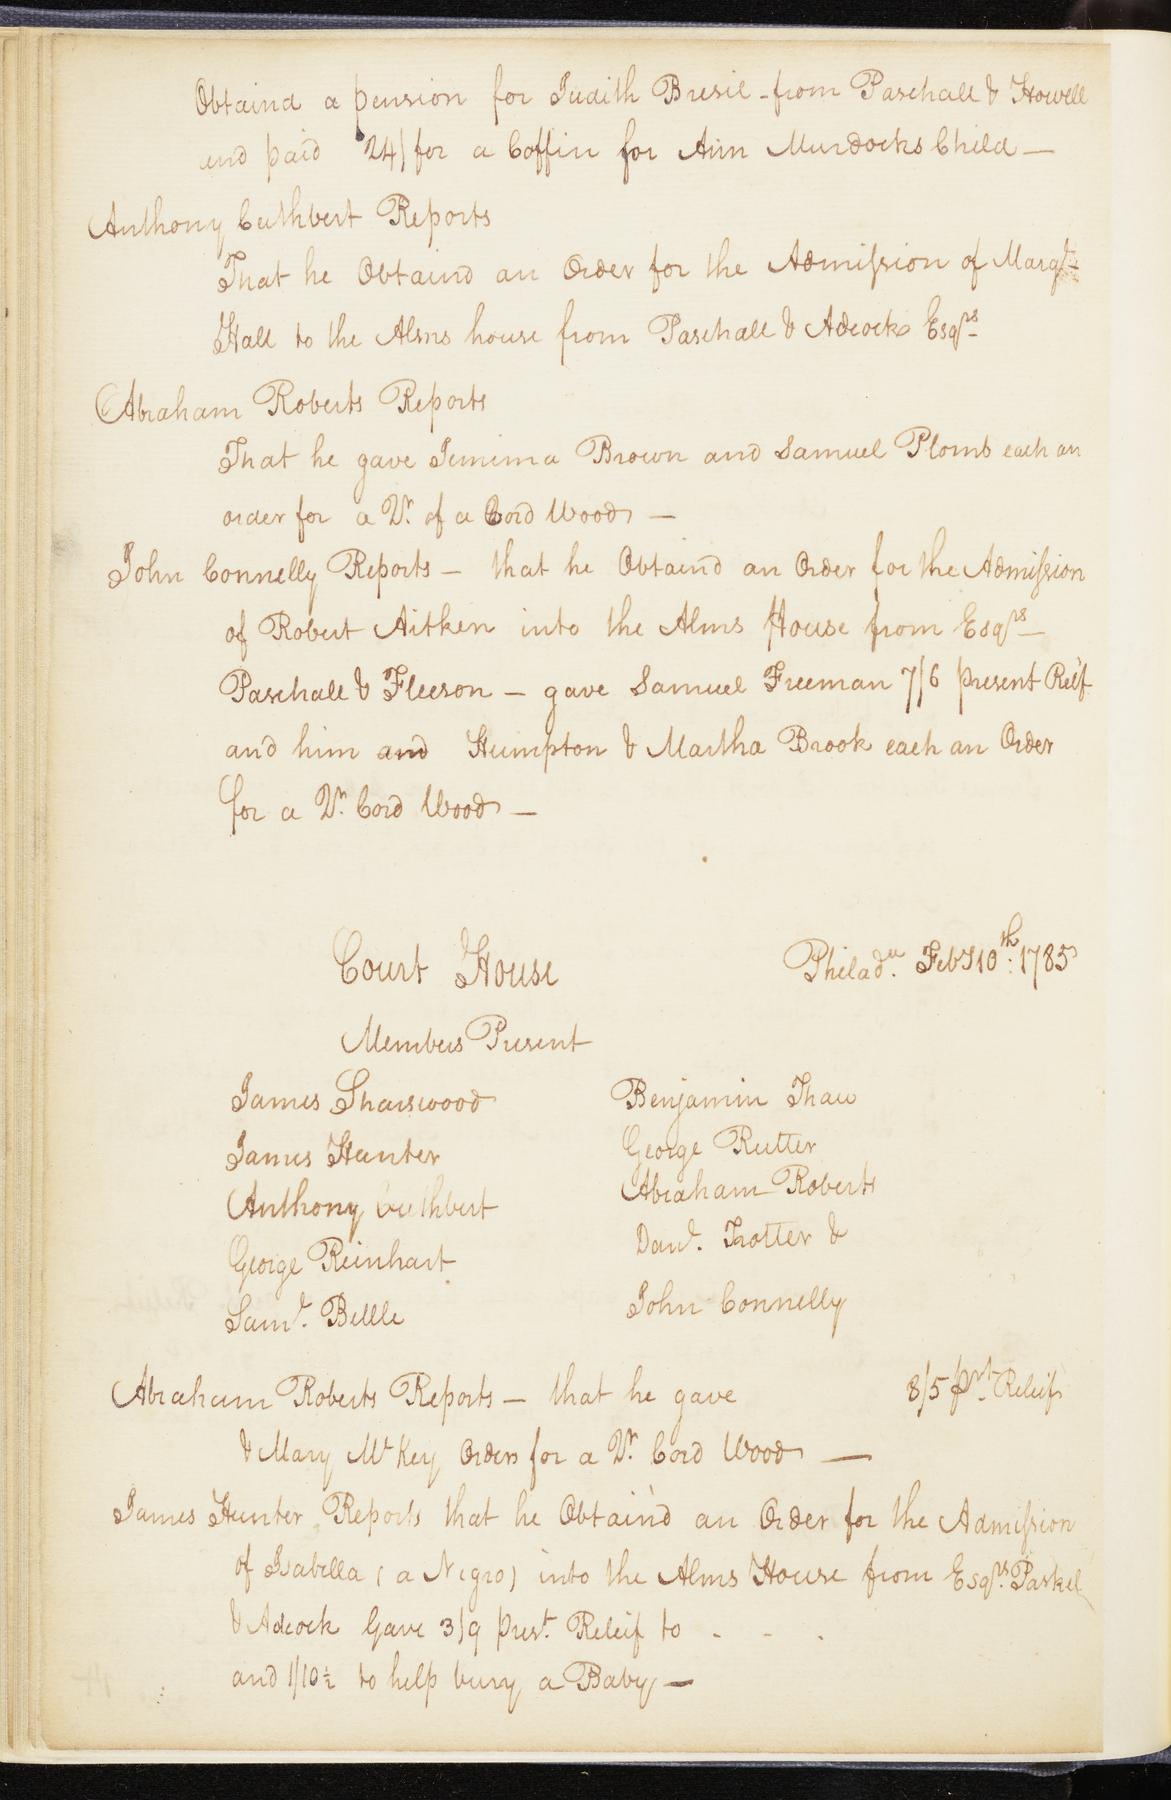 Obtaind a pension for Judith Bresil from Paschall & Howell
and paid 24/ for a Coffin for Ann Murdocks Child —
Anthony Cuthbert Reports
That he Obtaind an Order for the Admission of Margt
Hall to the Alms house from Paschall & Adcocks Esqrs
Abraham Roberts Reports
That he gave Jemima Brown and Samuel Plomb each an
order for a Qr. of a Cord Wood —
John Connelly Reports — that he Obtaind an Order for the Admission
of Robert Aitken into the Alms House from Esqrs —
Paschall & Fleeson — gave Samuel Freeman 7/6 present Relf
and him and Humpton & Martha Brook each an Order
for a Qr. Cord Wood —
Court House Philada. Feby 10th: 1785
Members Present
James Sharswood Benjamin Thaw
James Hunter George Rutter
Anthony Cuthbert Abraham Roberts
George Reinhart Danl. Trotter &
Saml. Bettle John Connelly
Abraham Roberts Reports — that he gave 8/5 prt Releif
& Mary McKey Orders for a Qr. Cord Wood —
James Hunter Reports that he Obtain'd an Order for the Admission
of Isabella (a Negro) into the Alms House from Esqrs. Paskel
& Adcock Gave 3/9 prest. Releif to - - .
and 1/10½ to help bury a Baby —